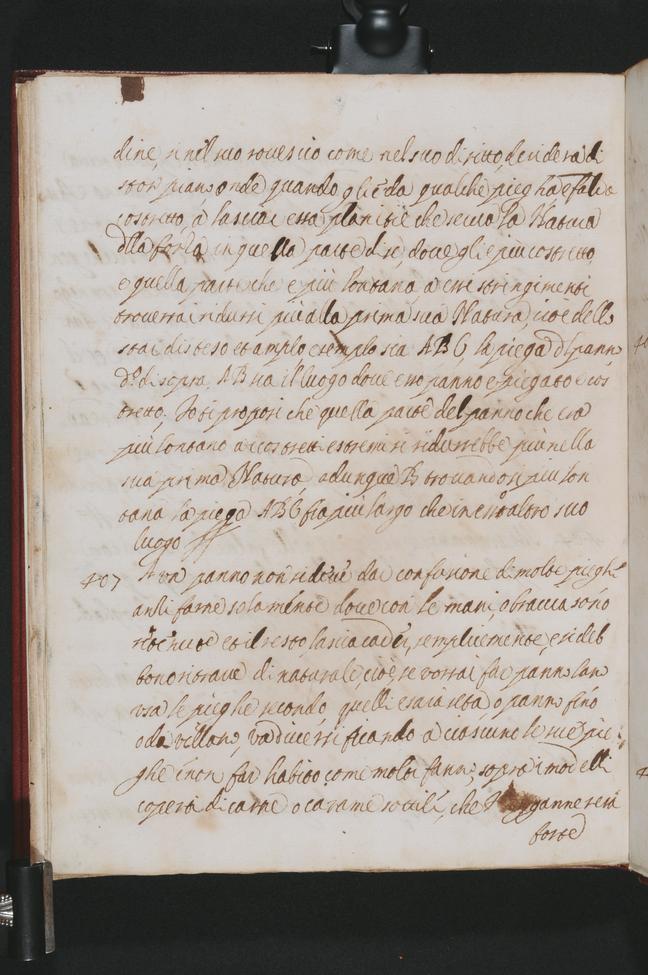 dine, si nel suo rovescio come nel suo diritto desidera di
star piano onde quando gli è da qualche piegha e falda
costretto, à lasciar essa planitie che serva la Natura
della forza in quella parte di se, dove gli è più costretto
e quella parte che e più lontana à essi stringimenti
troverrai ridursi più alla prima sua Natura, cioè dello
star disteso et amplo esemplo sia ABC, la piega del panno
do. di sopra, AB sia il luogo dove esso panno e piegato e cos
tretto. Io ti proposi che quella parte del panno che era
più lontano a costretti estremi si ridurrebbe più nella
sua prima Natura adunque B trovandosi piu lon
tana la piega ABC fia più largo che in ess'altro suo
luogo
407 A un panno non si deve dar confusione de molte pieghe
anzi farne solamente dove con le mani, o braccia sono
ritenute et il resto lasciar cader, semplicemente, e si deb
bono ritrarre di naturale, cioè se vorrai far panno lan
usa le pieghe secondo quelli e sarà seta o panno fino
o da villano, va diversificando a ciascuno le sue pie
ghe e non far habito come molti fanno, sopra i modelli
coperti di carta o carame sottile, che t'ingannaresti
forte